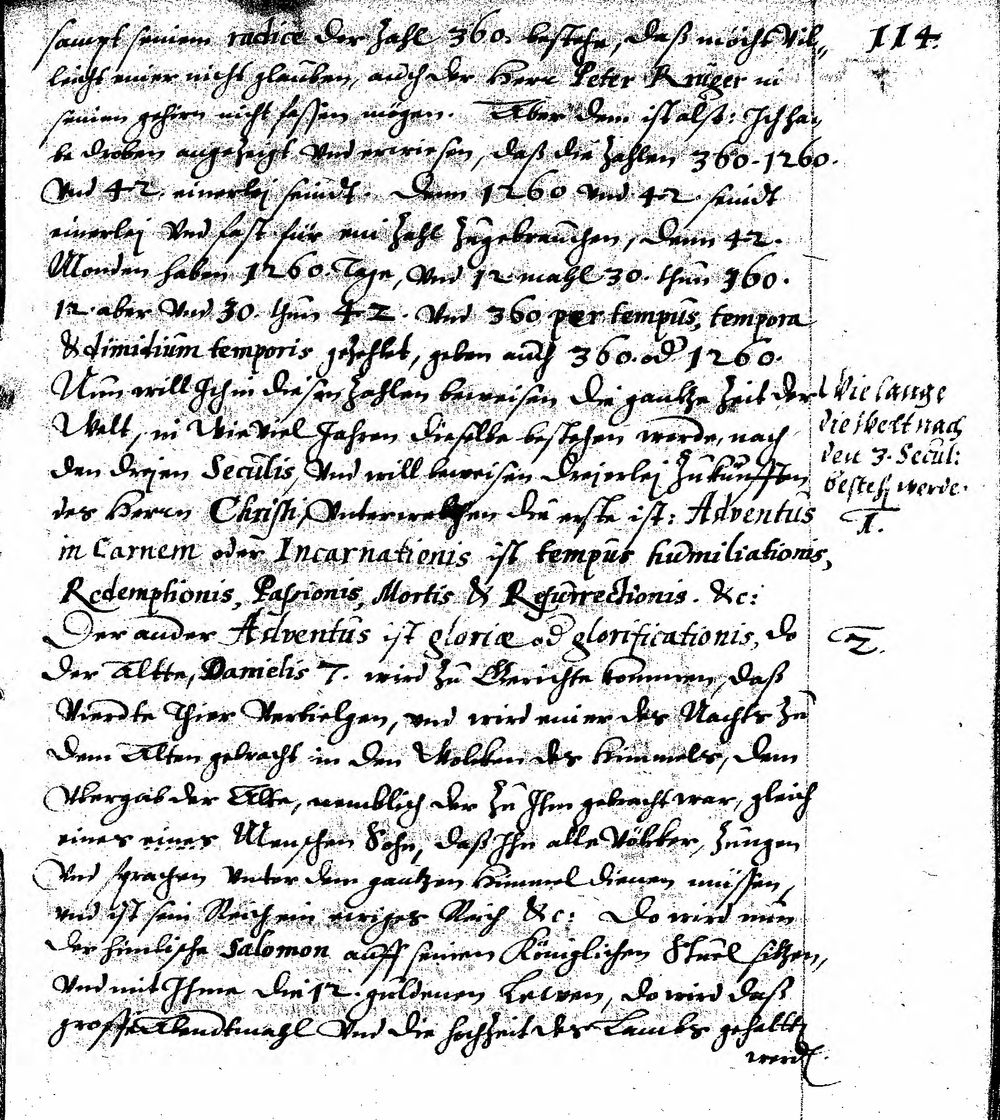 114.
sampt seinem radice der Zahl 360. bestehe, daß möcht vil,,
leicht einer nicht glauben, auch der Herr Peter Krüger in
seinem gehirn nicht fassen mögen. Aber dem ist alß: Ich ha,,
be droben angezeigt vnd erwiesen, daß die Zahlen 360. 1260.
vnd 42. einerlej seindt. Denn 1260 vnd 42. seindt
einerlej vnd fast für ein Zahl zugebrauchen, denn 42.
Monden haben 1260. Tage, vnd 12 mahl 30. thun 360.
12. aber vnd 30. thun 42. vnd 360 per tempus, tempora
& dimidium temporis gezehlet, geben auch 360. od 1260.
Nun will Ich in diesen Zahlen beweisen die gantze Zeit der
Welt, in wie viel Jahren dieselbe bestehen werde, nach
den drejen Seculis, vnd will beweisen drejerlej Zukunfften
des Herrn Christi, vnter welchen die erste ist: Adventus
in Carnem oder Incarnationis ist tempus humiliationis,
Redemptionis, Passionis, Mortis & Resurrectionis. &c:
Der ander Adventus ist gloriæ od glorificationis, do
der Altte, Danielis 7. wird zu Gerichte kommen, daß
vierdte Thier vertielgen, vnd wird einer des Nachts zu
dem Alten gebracht in den Wolken des Himmels, dem
vbergab der Alte, nemblich der zu Ihm gebracht war, gleich
eines eines Menschen Sohn, daß Ihn alle Völker, Zungen
vnd sprachen vnter dem gantzen Himmel dienen müssen,
vnd ist sein Reich ein ewiges Reich &c: Do wird nun
der himlische Salomon auff seinem Königlichen Stuel sitzen,
vnd mit Ihme die 12. guldenen Lewen, do wird daß
grosse Abendtmahl vnd die hochzeit des Lambs gehalten
werd
Wie lange
die Welt nach
den 3. Secul:
besteh werde.
1.
2.